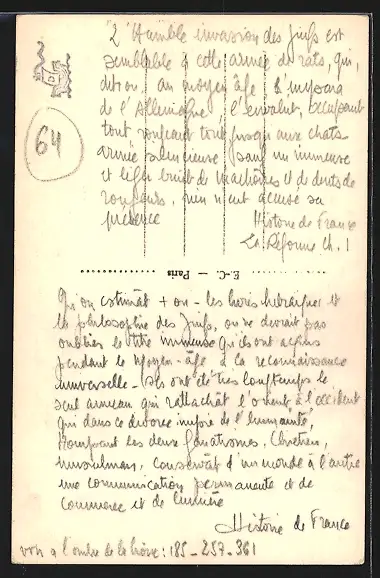 L'Humble invasion des juifs est
semblable à cette armée de rats, qui,
dit on, au moyen âge s'empara
de l'Allemagne, l'envahit, occupant
tout rongeant tout jusqu'aux chats
armée silencieuse sauf un immense
et léger bruit de machoires et de dents de
rongeurs, rien n'eut accusé sa
présence
Histoire de France
La Réforme Ch. 1
64
E.-C. — Paris
Qu'on estimât + ou - les livres hébraïques et
la philosophie des Juifs, on ne devrait pas
oublier le titre immense qu'ils ont acquis
pendant le Moyen-âge à la reconnaissance
universelle - Ils ont été très longtemps le
seul anneau qui rattachât l'orient à l'occident
qui dans ce divorce impie de l'humanité,
trompant les deux fanatismes, Chrétien,
musulman, conservât d'un monde à l'autre
une communication permanente et de
commerce et de lumière
Histoire de France
voir à l'ombre de la croix : 185 - 257 - 361